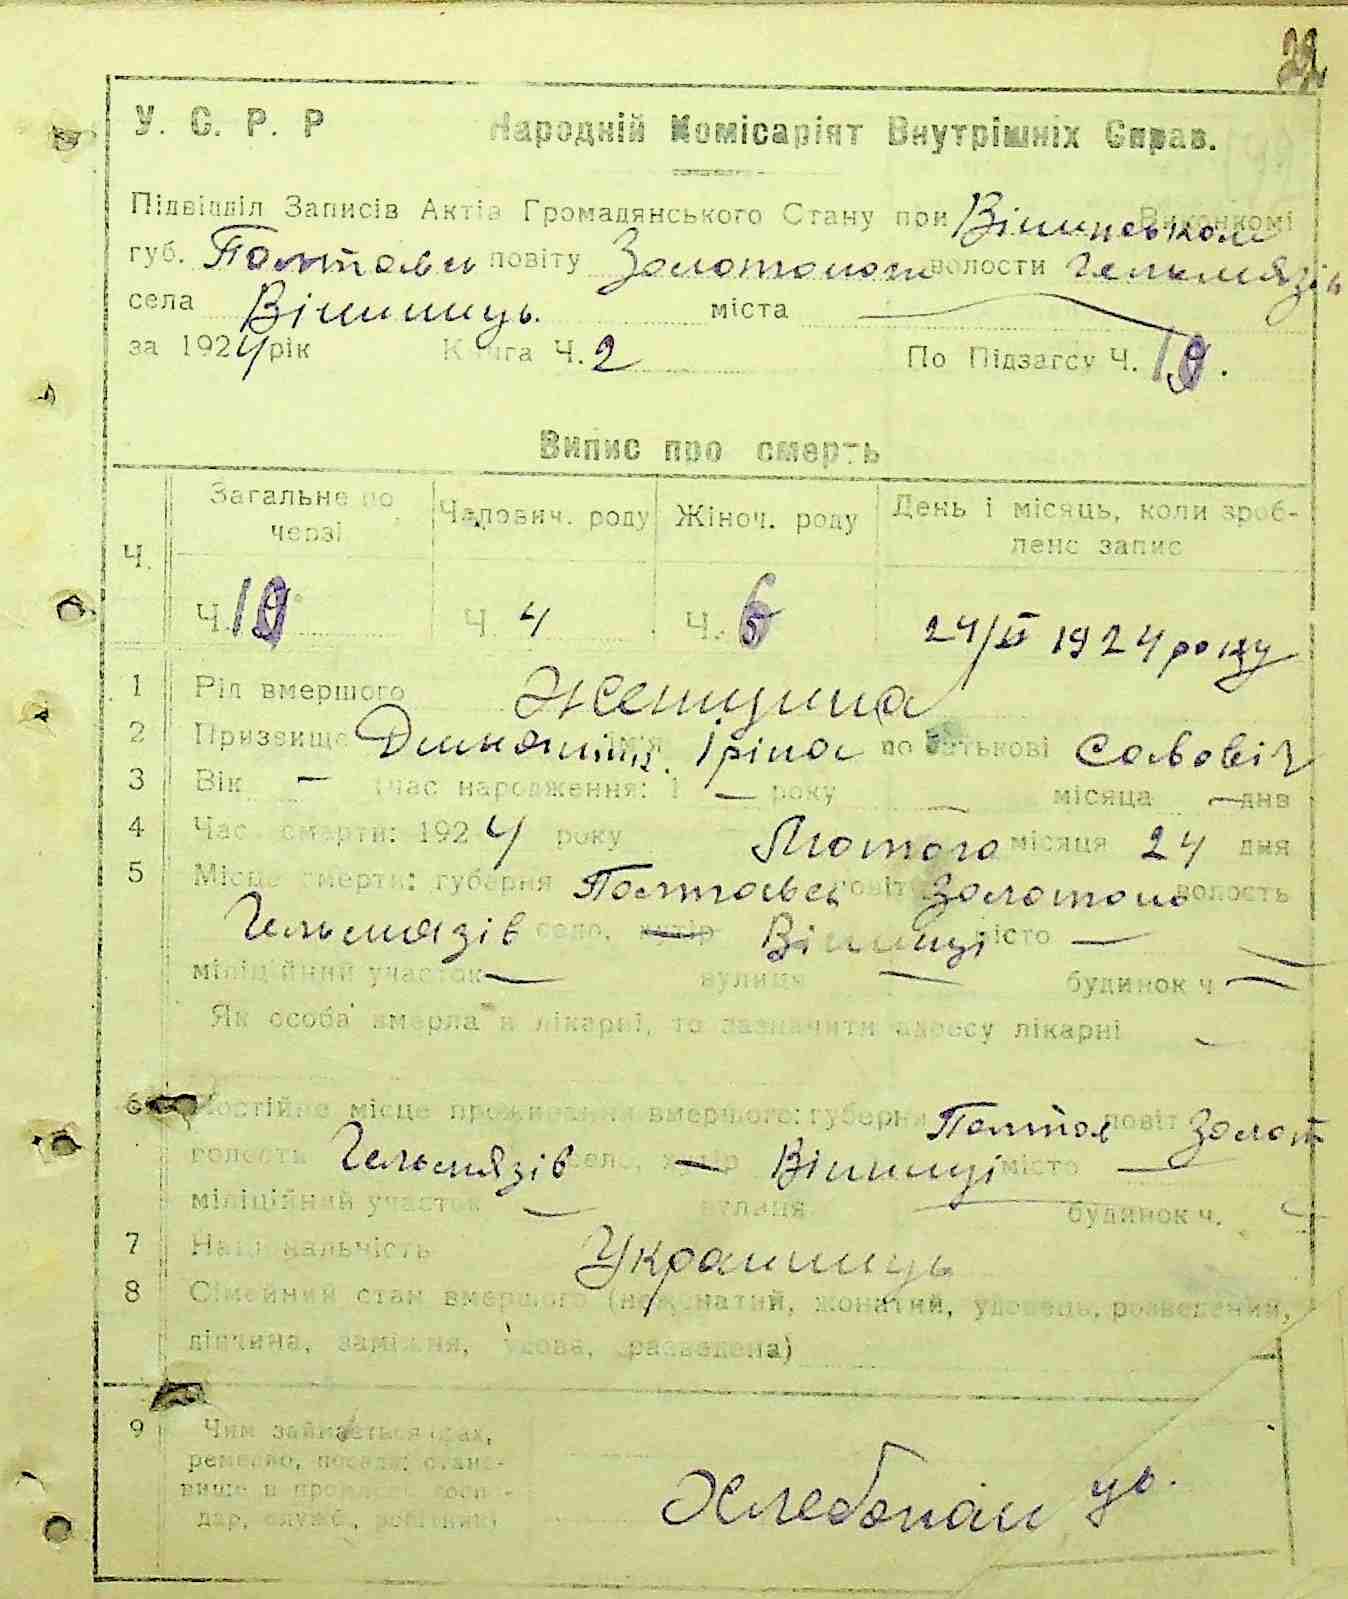 У. С. Р. Р Народній Комісаріят Внутрішніх Справ.
Підвідділ Записів Актів Громадянського Стану при Виконкомі
губ. Полтавськ повіту Золотоноськ волости Гельмязів
села Вішниць. міста —
за 1924 рік Книга Ч. 2 По Підзагсу Ч.
Випис про смерть
Ч.
Загальне по черзі
Чоловіч. роду
Жіноч. роду
День і місяць, коли зроблено запис
Ч.
Ч. 4
Ч.
24/II 1924 року
1 Рід вмершого Женщина
2 Призвище імя Іріна по батькові Савовіч
3 Вік — (час народження: 1 — року — місяца — днв
4 Час смерти: 1924 року Лютого місяця 24 дня
5 Місце смерти: губерня Полтавськ повіт Золотонос волость
Гельмязів село, хутір — Вішниці місто —
міліційний участок — вулиця — будинок ч —
Як особа вмерла в лікарні, то зазначити адресу лікарні -
6 Постійне місце проживання вмершого: губерня Полтав повіт Золот
волость Гельмязів село, хутір — Вішниці місто —
міліційний участок — вулиця — будинок ч. —
7 Національність Українець
8 Сімейний стан вмершого (нежонатий, жонатий, удовець, розведений,
дівчина, заміжня, удова, разведена)
9 Чим займається (фах,
ремесло, посада; стано-
вище в промислі: госпо-
дар, служб., робітник)
Хлебопашець.